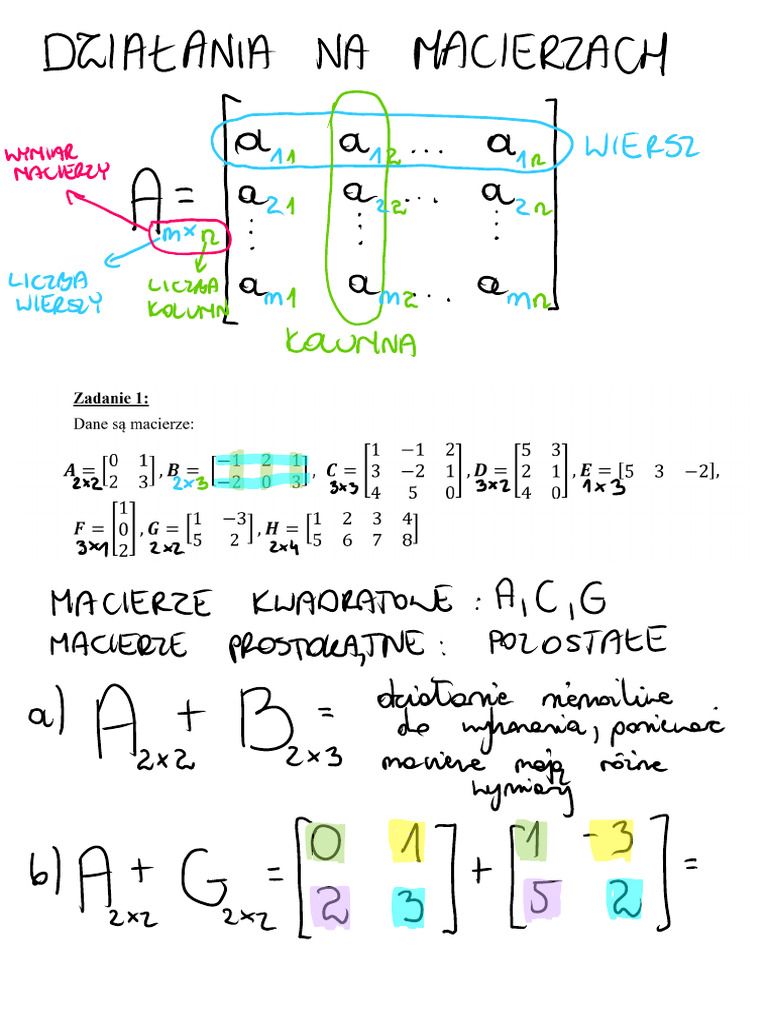 DZIAŁANIA NA MACIERZACH
WYMIAR
MACIERZY
A = [a11 a12 ... a1n] WIERSZ
m×n
[a21 a22 ... a2n]
⋮ ⋮ ⋮
[am1 am2 ... amn]
LICZBA
WIERSZY
LICZBA
KOLUMN
KOLUMNA
Zadanie 1:
Dane są macierze:
A = [0 1; 2 3], B = [−1 2 1; −2 0 3], C = [1 −1 2; 3 −2 1; 4 5 0], D = [5 3; 2 1; 4 0], E = [5 3 −2],
2×2 2×3 3×3 3×2 1×3
F = [1; 0; 2], G = [1 −3; 5 2], H = [1 2 3 4; 5 6 7 8]
3×1 2×2 2×4
MACIERZE KWADRATOWE : A, C, G
MACIERZE PROSTOKĄTNE : POZOSTAŁE
a) A2×2 + B2×3 = działanie niemożliwe
do wykonania, ponieważ
macierze mają różne
wymiary
b) A2×2 + G2×2 = [0 1; 2 3] + [1 -3; 5 2] =